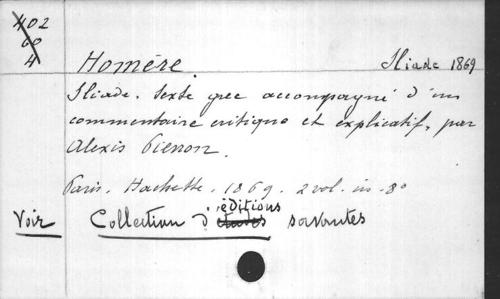 402
60
4
Homère Iliade 1869
Iliade. texte grec accompagné d'un
commentaire critique et explicatif, par
Alexis Pierron.
Paris. Hachette. 1869. 2 vol. in-8°
éditions
Voir Collection d'études savantes